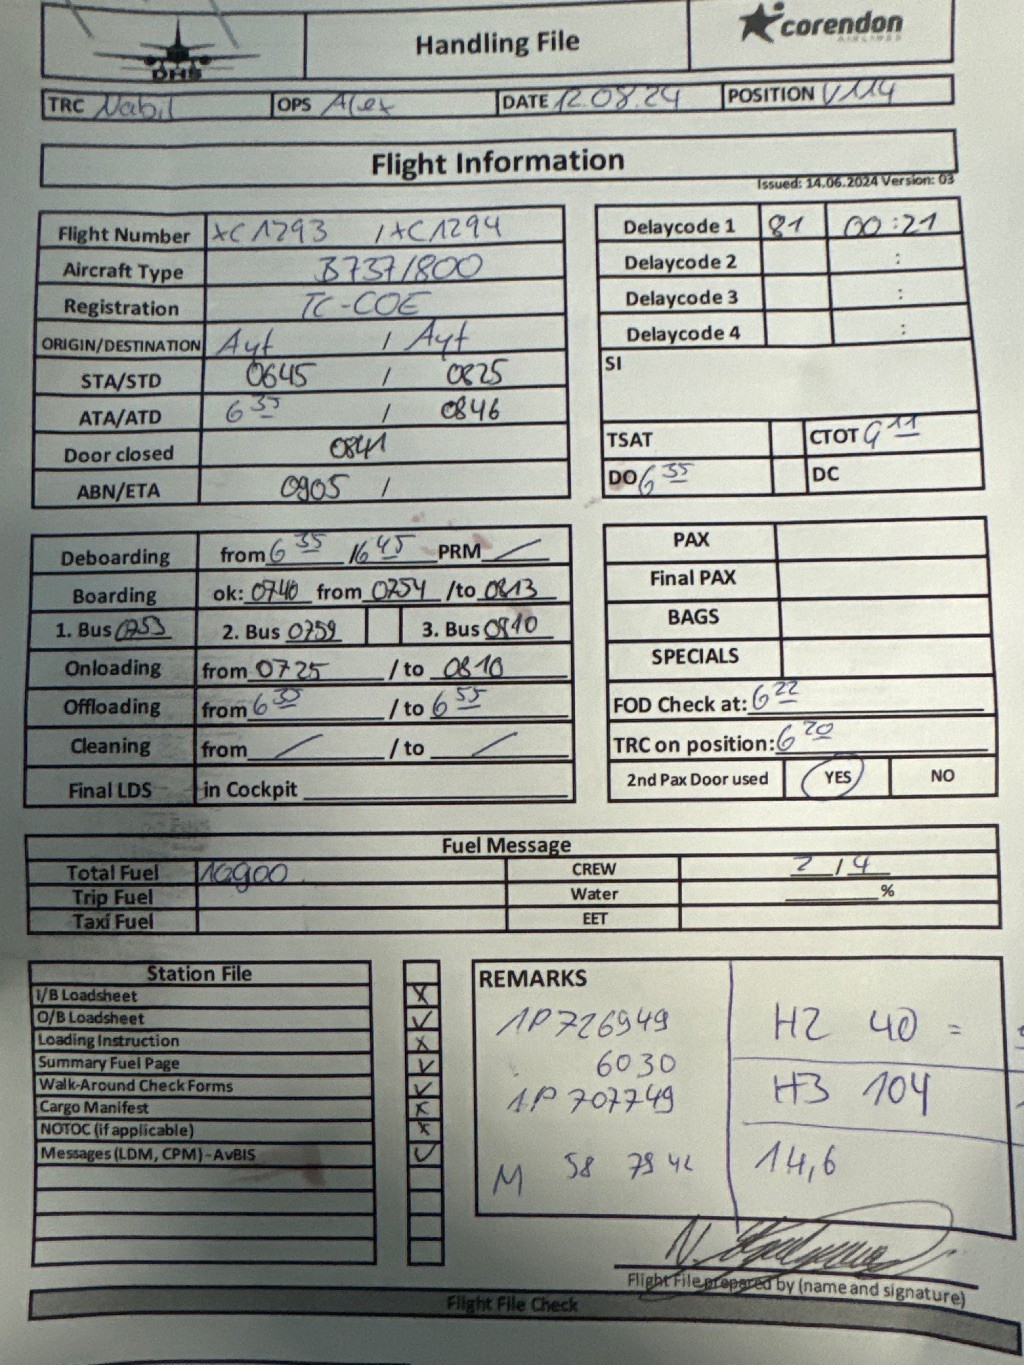 DHS
Handling File
corendon
AIRLINES
TRC Nabil OPS Alex DATE 12.08.24 POSITION V114
Flight Information
Issued: 14.06.2024 Version: 03
Flight Number XC1293 / XC1294
Aircraft Type B737/800
Registration TC-COE
ORIGIN/DESTINATION Ayt / Ayt
STA/STD 0645 / 0825
ATA/ATD 6 35 / 0846
Door closed 0841
ABN/ETA 0905 /
Delaycode 1 81 00:21
Delaycode 2 :
Delaycode 3 :
Delaycode 4 :
SI
TSAT CTOT 9 11
DO 6 35 DC
Deboarding from 6 35 /6 45 PRM
Boarding ok: 0740 from 0754 /to 0813
1. Bus 0753 2. Bus 0759 3. Bus 0810
Onloading from 0725 / to 0810
Offloading from 6 35 / to 6 55
Cleaning from / to
Final LDS in Cockpit
PAX
Final PAX
BAGS
SPECIALS
FOD Check at: 6 22
TRC on position: 6 20
2nd Pax Door used YES NO
Fuel Message
Total Fuel CREW 2 / 4
Trip Fuel Water %
Taxi Fuel EET
Station File
I/B Loadsheet X
O/B Loadsheet ✓
Loading Instruction X
Summary Fuel Page ✓
Walk-Around Check Forms ✓
Cargo Manifest X
NOTOC (if applicable) X
Messages (LDM, CPM) - AvBIS ✓
REMARKS
1P 726949
6030
1P 707749
M 58 79 42
H2 40 =
H3 104
14,6
Flight File prepared by (name and signature)
Flight File Check